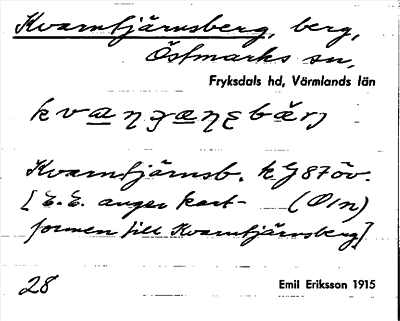 Kvarntjärnsberg, berg,
Östmarks sn,
Fryksdals hd, Värmlands län
Kvarntjärnsb. k G 87 öv.
[E.E. anger kart- (Öln)
formen till Kvarntjärnsberg]
28 Emil Eriksson 1915